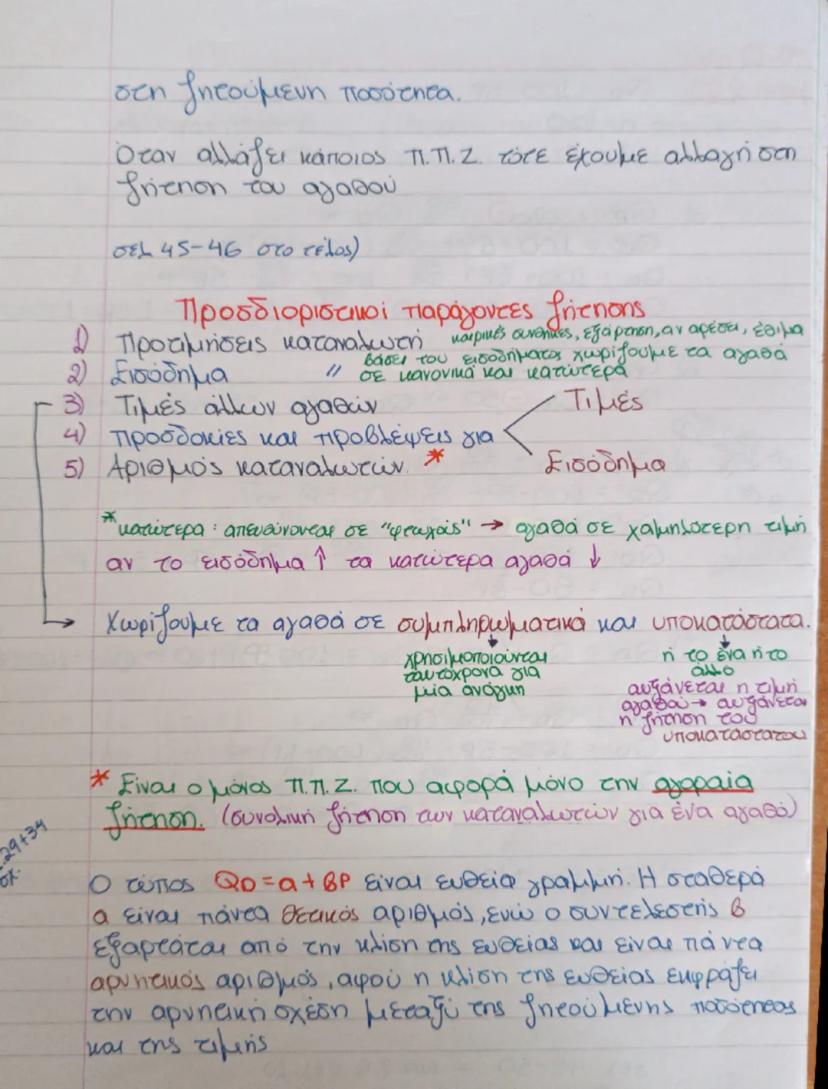 στη ζητούμενη ποσότητα.
Όταν αλλάξει κάποιος Π.Π.Ζ. τότε έχουμε αλλαγή στη
ζήτηση του αγαθού
σελ 45-46 στο τέλος)
Προσδιοριστικοί παράγοντες ζήτησης
1) Προτιμήσεις καταναλωτή καιρικές συνθήκες, εξάρτηση, αν αρέσει, έθιμα
2) Εισόδημα // βάσει του εισοδήματος χωρίζουμε τα αγαθά
σε κανονικά και κατώτερα
3) Τιμές άλλων αγαθών
4) Προσδοκίες και προβλέψεις για
Τιμές
Εισόδημα
5) Αριθμός καταναλωτών *
*κατώτερα: απευθύνονται σε "φτωχούς" → αγαθά σε χαμηλότερη τιμή
αν το εισόδημα ↑ τα κατώτερα αγαθά ↓
→ Χωρίζουμε τα αγαθά σε συμπληρωματικά και υποκατάστατα.
χρησιμοποιούνται
ταυτόχρονα για
μία ανάγκη
ή το ένα ή το
άλλο
αυξάνεται η τιμή
αγαθού → αυξάνεται
η ζήτηση του
υποκατάστατου
* Είναι ο μόνος Π.Π.Ζ. που αφορά μόνο την αγοραία
ζήτηση. (συνολική ζήτηση των καταναλωτών για ένα αγαθό)
29+34
Ο τύπος QD=α+βP είναι ευθεία γραμμή. Η σταθερά
α είναι πάντα θετικός αριθμός, ενώ ο συντελεστής β
εξαρτάται από την κλίση της ευθείας και είναι πάντα
αρνητικός αριθμός, αφού η κλίση της ευθείας εκφράζει
την αρνητική σχέση μεταξύ της ζητούμενης ποσότητας
και της τιμής